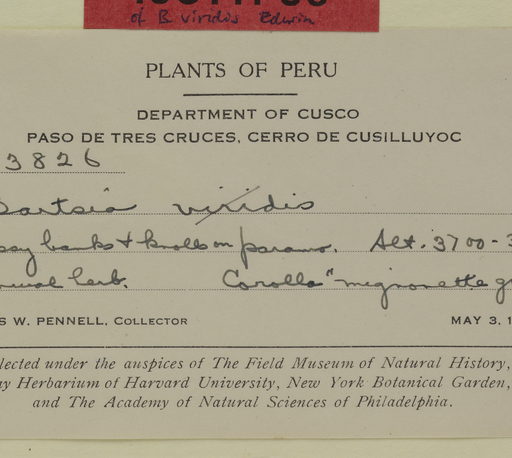 of B. viridis Edwin
PLANTS OF PERU
DEPARTMENT OF CUSCO
PASO DE TRES CRUCES, CERRO DE CUSILLUYOC
3826
Bartsia viridis
ssy banks & knolls on paramo. Alt. 3700-3
nnual herb. Corolla "mignonette g
S W. PENNELL, COLLECTOR MAY 3, 1
llected under the auspices of The Field Museum of Natural History,
ay Herbarium of Harvard University, New York Botanical Garden,
and The Academy of Natural Sciences of Philadelphia.